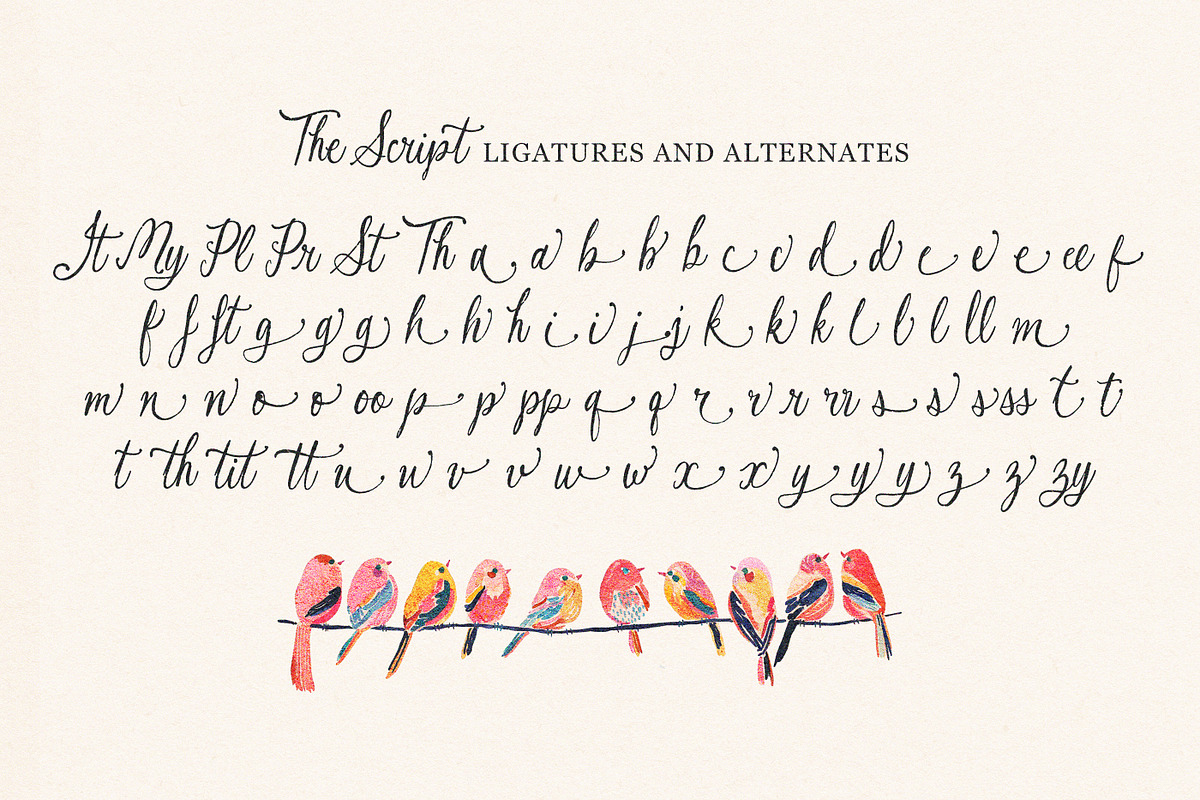 The Script LIGATURES AND ALTERNATES
It My Pl Pr St Th a a b b b c c d d e e e ee f
f f ft g g g h h h i i j j k k k l l l ll m
m n n o o oo p p pp q q r r r rr s s s ss t t
t th tit tt u u v v w w x x y y y z z zy